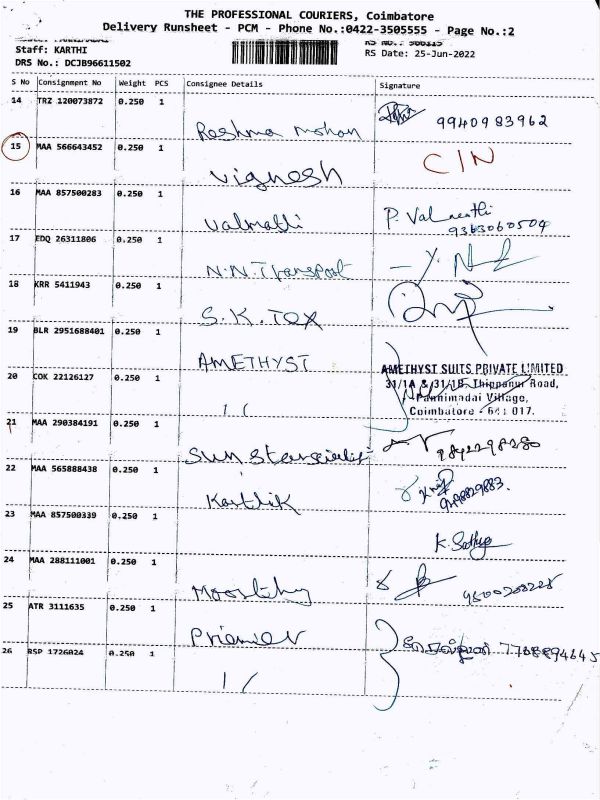 THE PROFESSIONAL COURIERS, Coimbatore
Delivery Runsheet - PCM - Phone No.:0422-3505555 - Page No.:2
Staff: KARTHI
RS Date: 25-Jun-2022
DRS No.: DCJB96611502
S No Consignment No Weight PCS Consignee Details Signature
14 TRZ 120073872 0.250 1 Reshma mohan 9940983962
15 MAA 566643452 0.250 1 Vignesh CIN
16 MAA 857500283 0.250 1 Valmathi P. Valmathi
9363060504
17 EDQ 26311806 0.250 1 N.N.Transport
18 KRR 5411943 0.250 1 S.K.TEX
19 BLR 2951688401 0.250 1 AMETHYST
AMETHYST SUITS PRIVATE LIMITED
31/1A & 31/1B, Thippanur Road,
Pannimadai Village,
Coimbatore - 641 017.
20 COK 22126127 0.250 1 11
21 MAA 290384191 0.250 1 Sun 9842298280
22 MAA 565888438 0.250 1 Karthik
23 MAA 857500339 0.250 1 K. Sathya
24 MAA 288111001 0.250 1 Moorthy
25 ATR 3111635 0.250 1 Premier
26 RSP 1726024 0.250 1 11